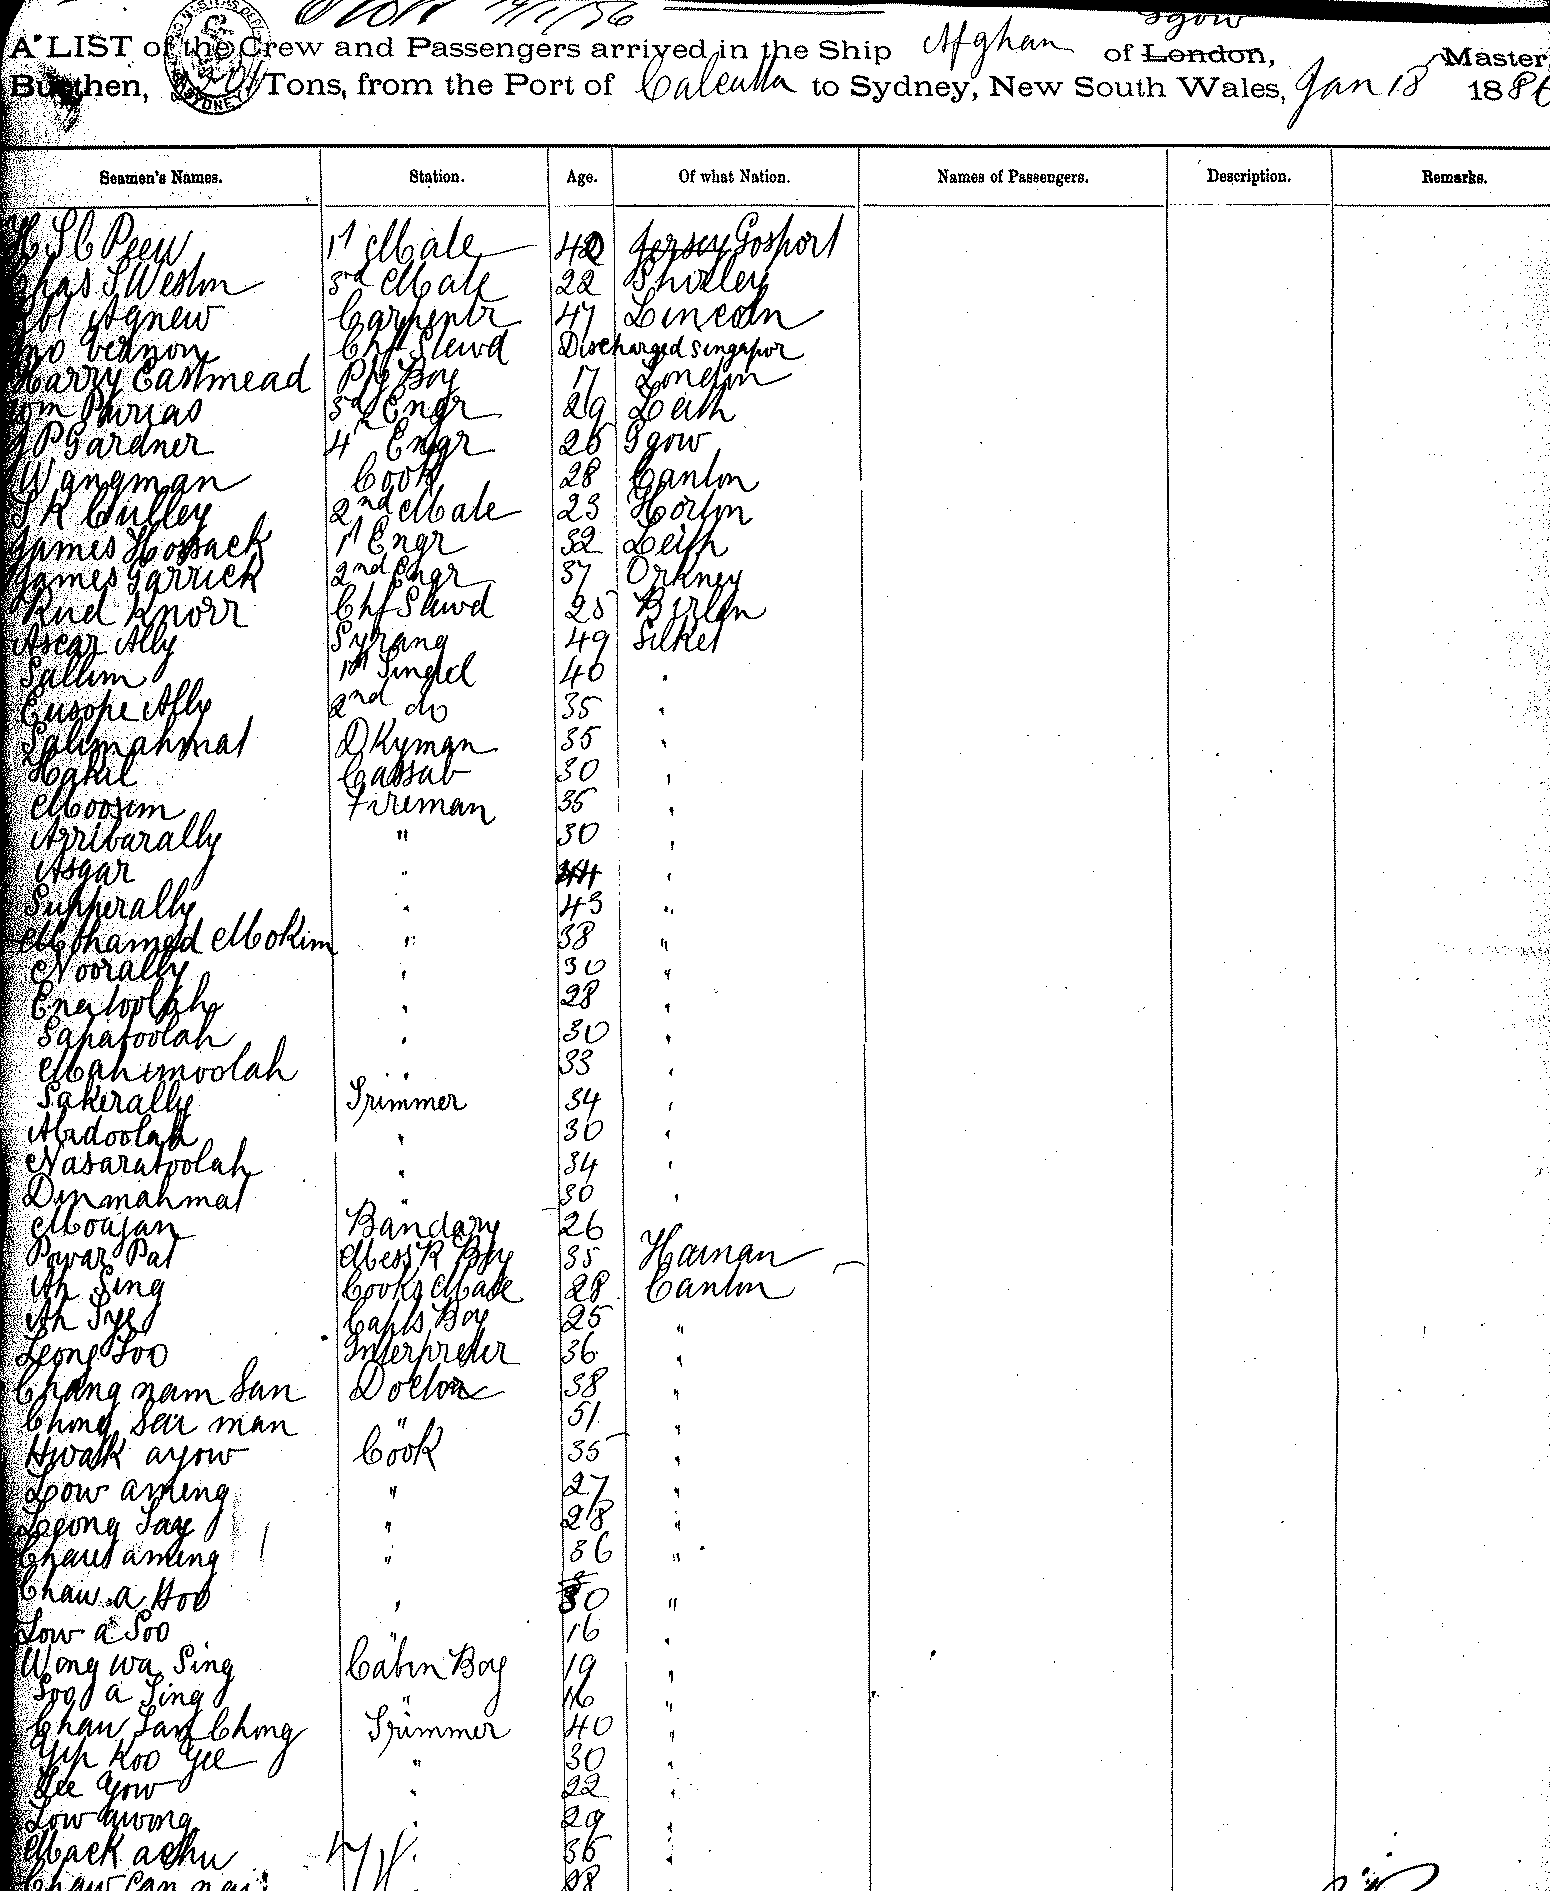 A LIST of the Crew and Passengers arrived in the Ship Afghan of London, Master
Burthen, Tons, from the Port of Calcutta to Sydney, New South Wales, Jan 18 188
Seamen's Names. Station. Age. Of what Nation. Names of Passengers. Description. Remarks.
1st Mate 42 Jersey Gosport
Chas S Weston 3rd Mate 22 Shirley
Agnew Carpentr 47 Lincoln
Jno Vernon Chf Stewd Discharged Singapor
Harry Eastmead Boy 17 London
Tom Purvas 3rd Engr 29 Leith
J P Gardner 4th Engr 26 Ggow
Wangman Cook 28 Canton
Culley 2nd Mate 23 Horton
James Hossack 1st Engr 32 Leith
James Garrick 2nd Engr 37 Orkney
Rud Knorr Chf Stewd 25 Berlin
Ascar Ally Syrang 49 Silket
Sullim 1st Tindel 40
Eusope Ally 2nd do 35
Salimahmat DKyman 35
Cassab 30
Moosim Fireman 35
Azribarally " 30
Asgar " 44
Supperally " 43 "
Mohamed Mokim " 38 "
Noorally " 30 "
Enatoolah " 28
Sapatoolah " 30
Mahimoolah " 33
Sakerally Trimmer 34
Abdoolah " 30
Nasaratoolah " 34
Dinmahmat " 30
Moajan Bandary 26
Pat Mess R Boy 35 Hainan
Ah Sing Cooks Mate 28 Canton
Ah Sye Capts Boy 25 "
Leong Soo Interpreter 36 "
Chang nam San Doctor 38 "
Chong Sear man " 51 "
Hwalk ayow Cook 35 "
Low ameng " 27 "
Leong Say " 28 "
Chaw ameng " 36 "
Chaw a Hoo " 30 "
Low a Soo " 16 "
Wong wa Sing Cabin Boy 19 "
Soo a Sing " 16 "
Chau San Chong Trimmer 40 "
Yip Koo Yee " 30 "
Lee Yow " 22 "
Low awong " 29 "
Mack achu 35